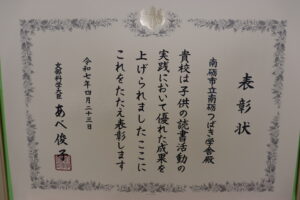 表彰状
南砺市立南砺つばき学舎殿
貴校は子供の読書活動の
実践において優れた成果を
上げられましたここに
これをたたえ表彰します
令和七年四月二十三日
文部科学大臣
あべ俊子